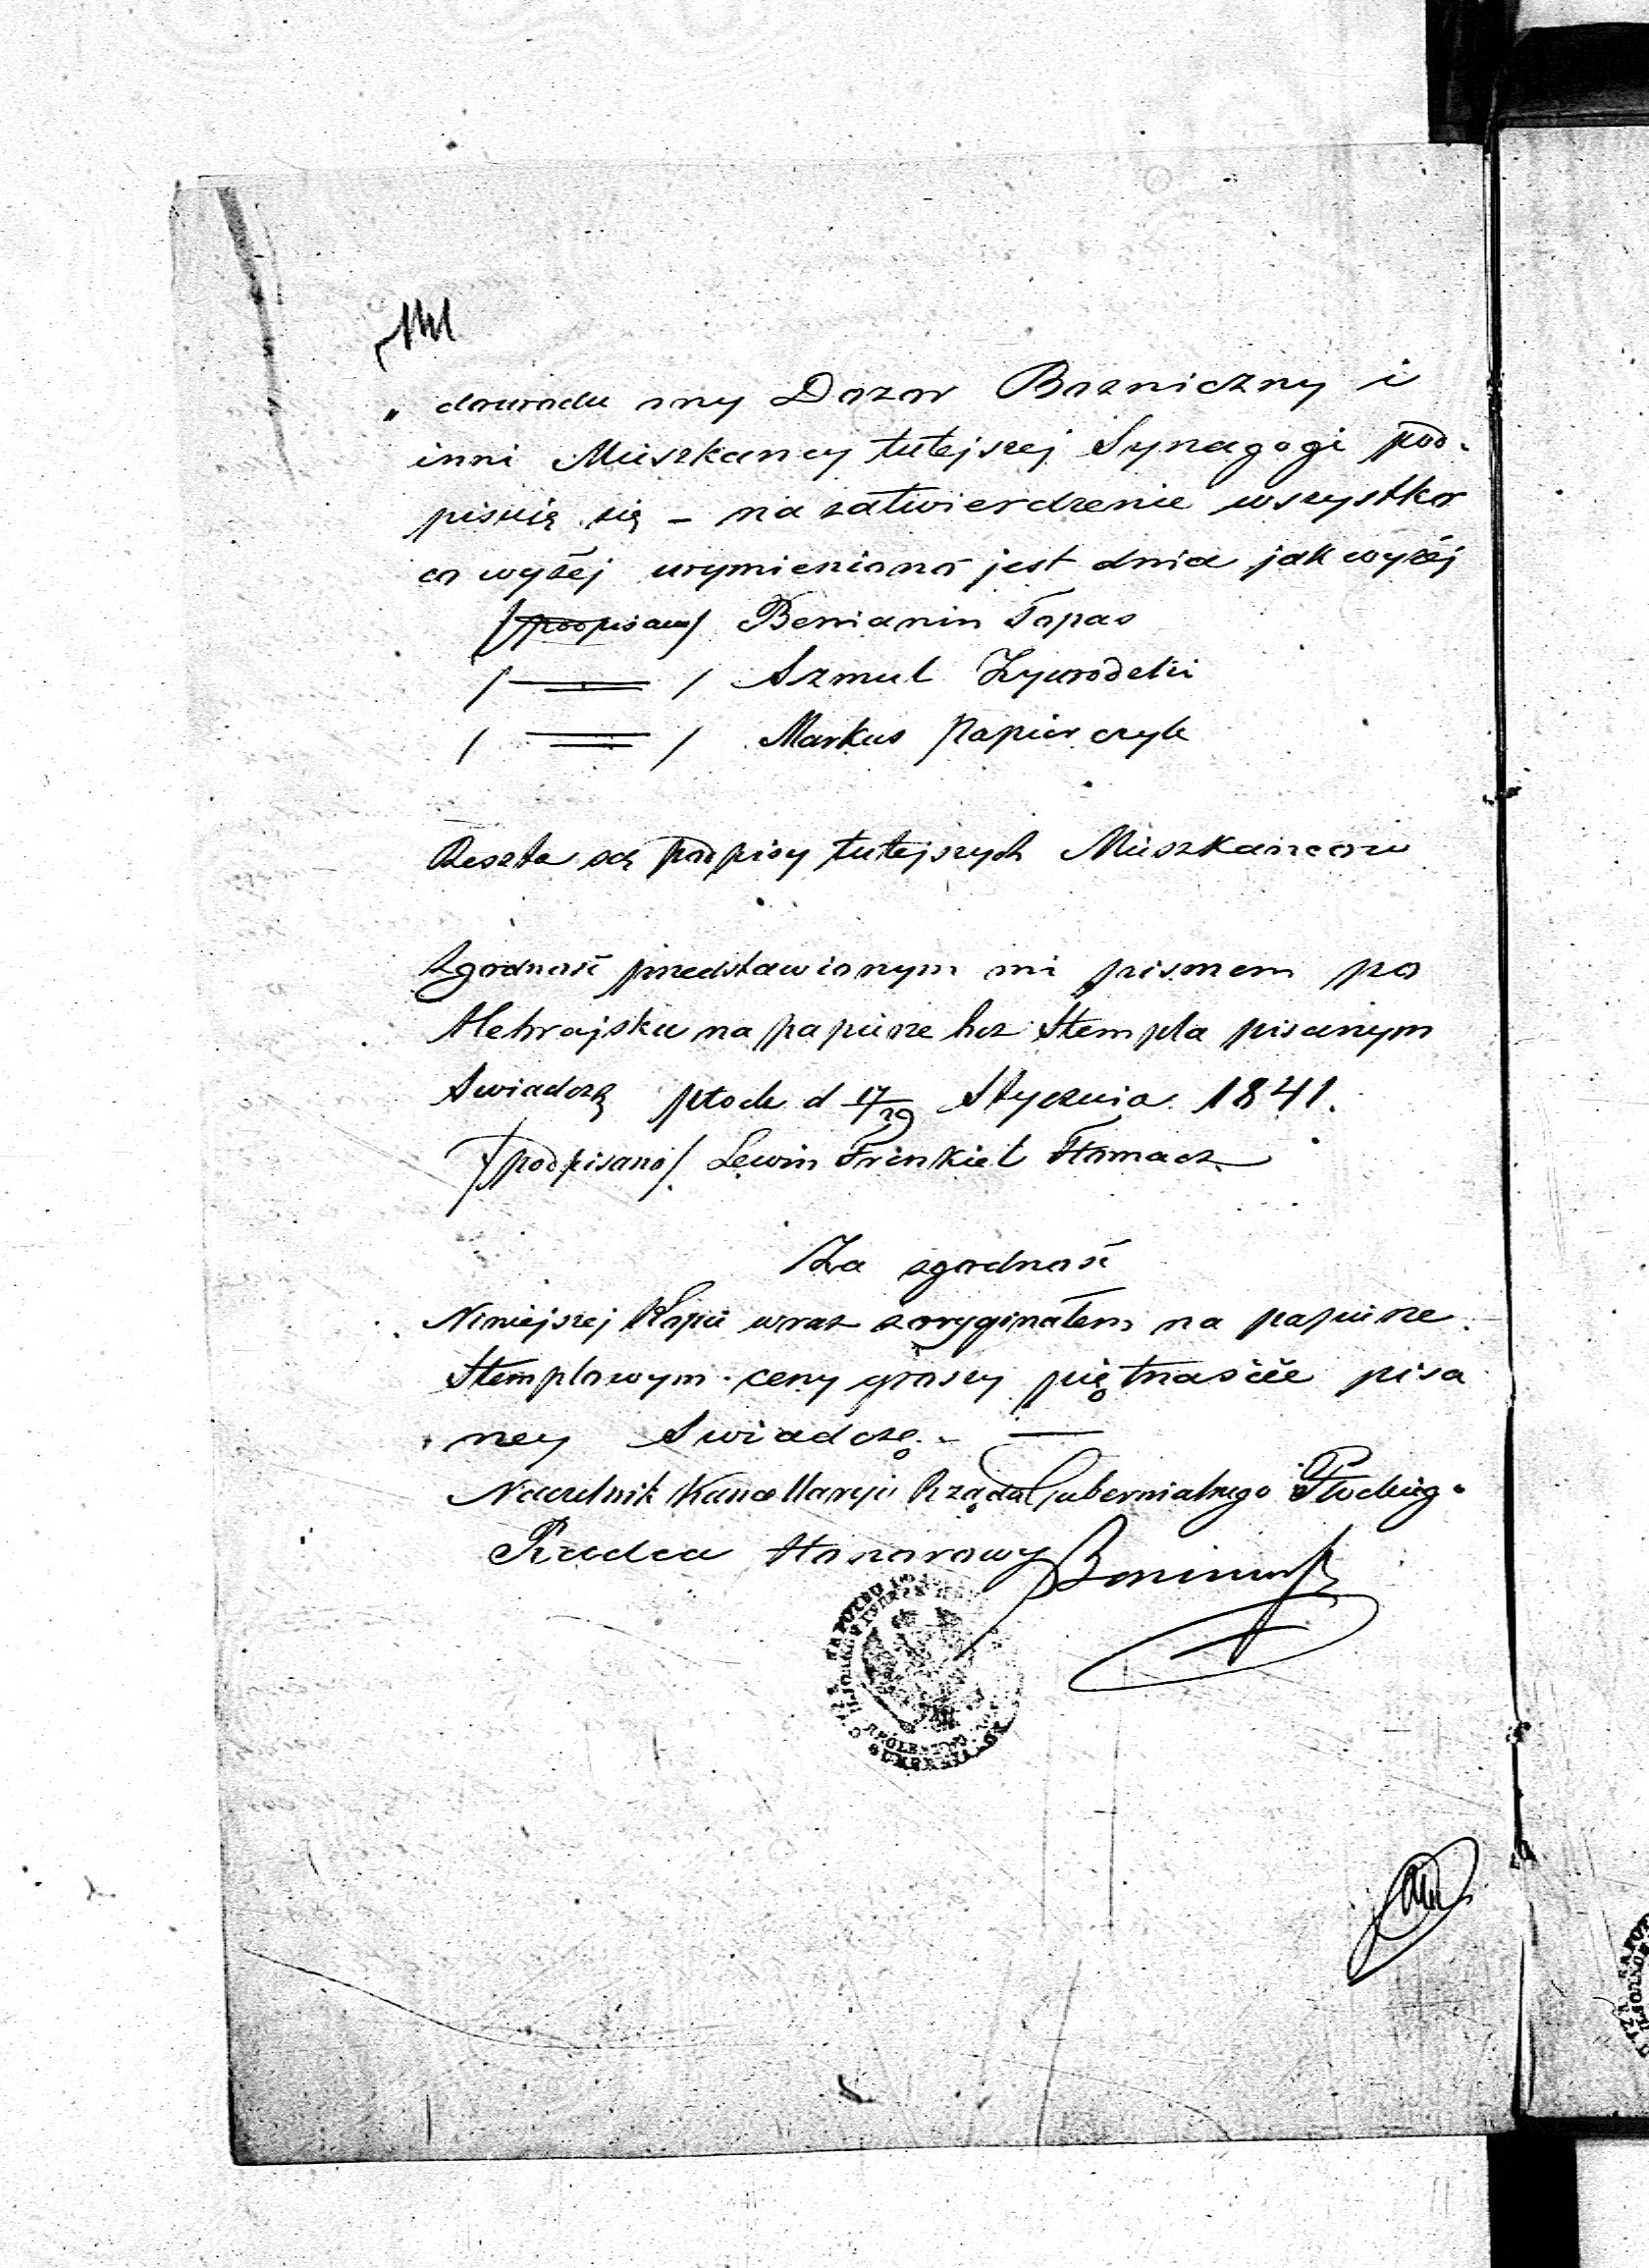 „ dowodu my Dozor Bozniczny i
inni Mieszkancy tutejszej Synagogi pod-
pisuię się – na zatwierdzenie wszystko
co wyżej wymieniono jest dnia jak wyżej
/podpisano/ Beniamin Topas
/ ═ / Szmul
/ ═ / Markus Papierczyk
Reszta są podpisy tutejszych Mieszkancow
Zgodność przedstawionym mi pismem po
Hebrajsku na papierze bez Stempla pisanym
Swiadczę Płock d 17/29 Stycznia 1841.
/podpisano/ Lewin Frinkiel Tłomacz
Za zgodność
Niniejszej Kopii wraz z oryginałem na papierze
Stemplowym ceny groszy piętnaście pisa
ney Swiadczę. —
Naczelnik Kancellaryi Rządu Gubernialnego Płockieg.
Radca Honorowy